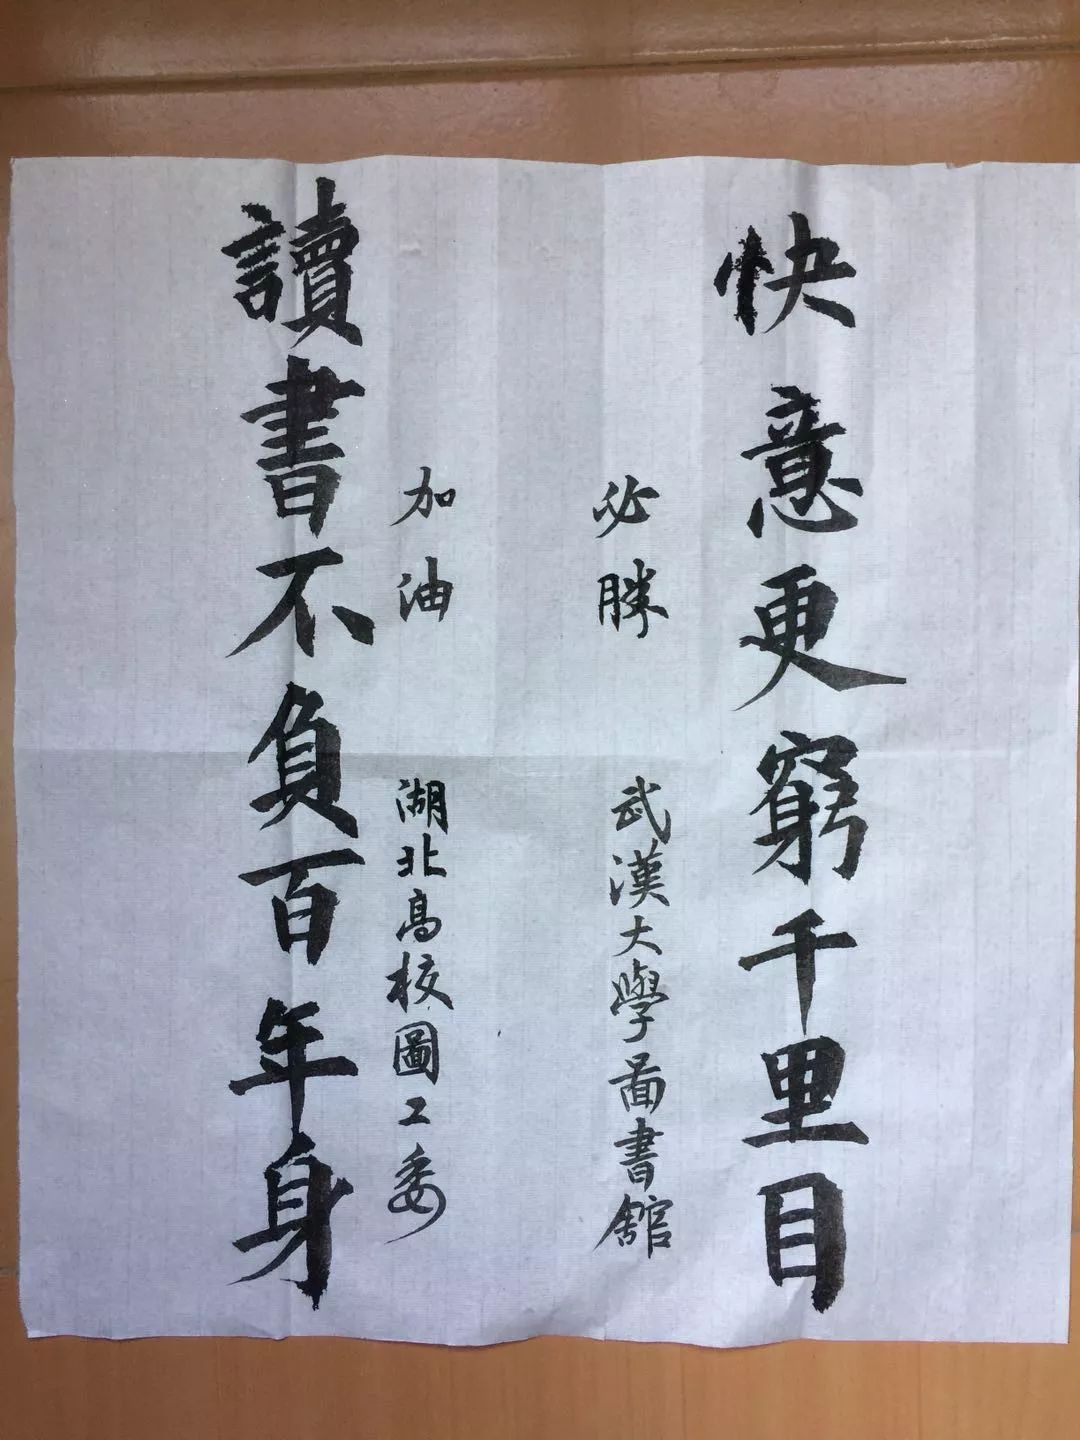 快意更窮千里目
必勝 武漢大學圖書館
加油 湖北高校圖工委
讀書不負百年身